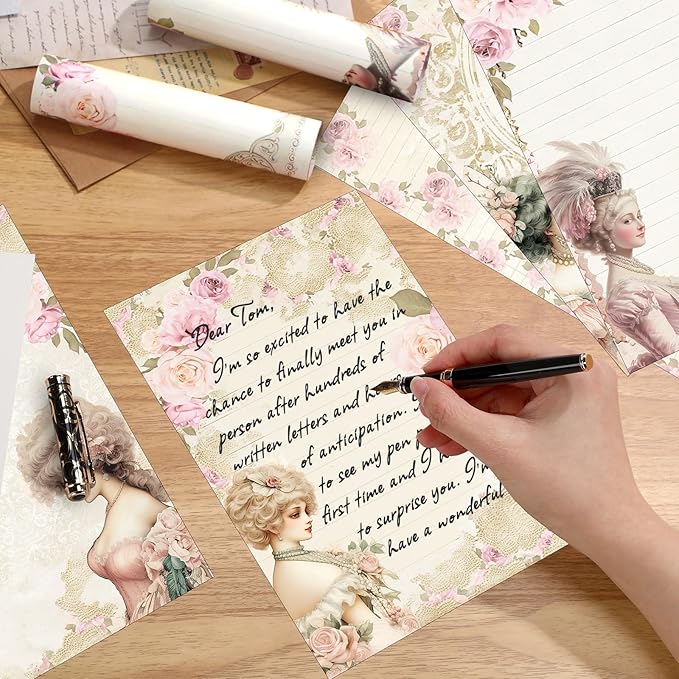 Dear Tom,
I'm so excited to have the
chance to finally meet you in
person after hundreds of
written letters and
of anticipation.
to see my pen
first time and I
to surprise you. I'm
have a wonderful